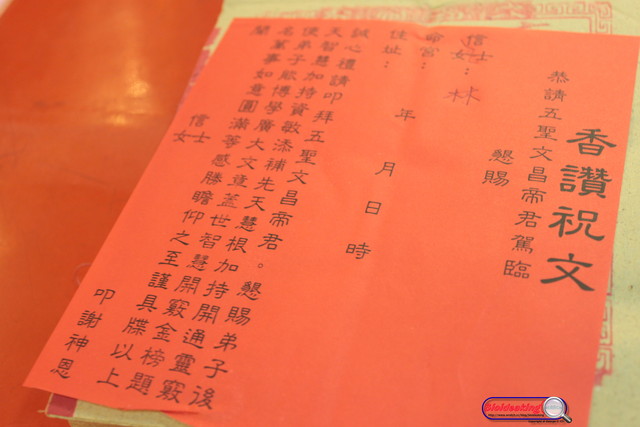 香讚祝文
恭請五聖文昌帝君駕臨
懇賜
信士女：林
命宮：
年月日時
住址：
誠心禮請叩拜五聖文昌帝君。懇賜弟子後
天智慧加持資敏添補先天慧根加持開通靈竅
使弟子敝博學廣大文章蓋世智慧開竅金榜題
名萬事如意圓滿等感勝瞻仰之至謹具牒以上
聞
信士女
叩謝神恩